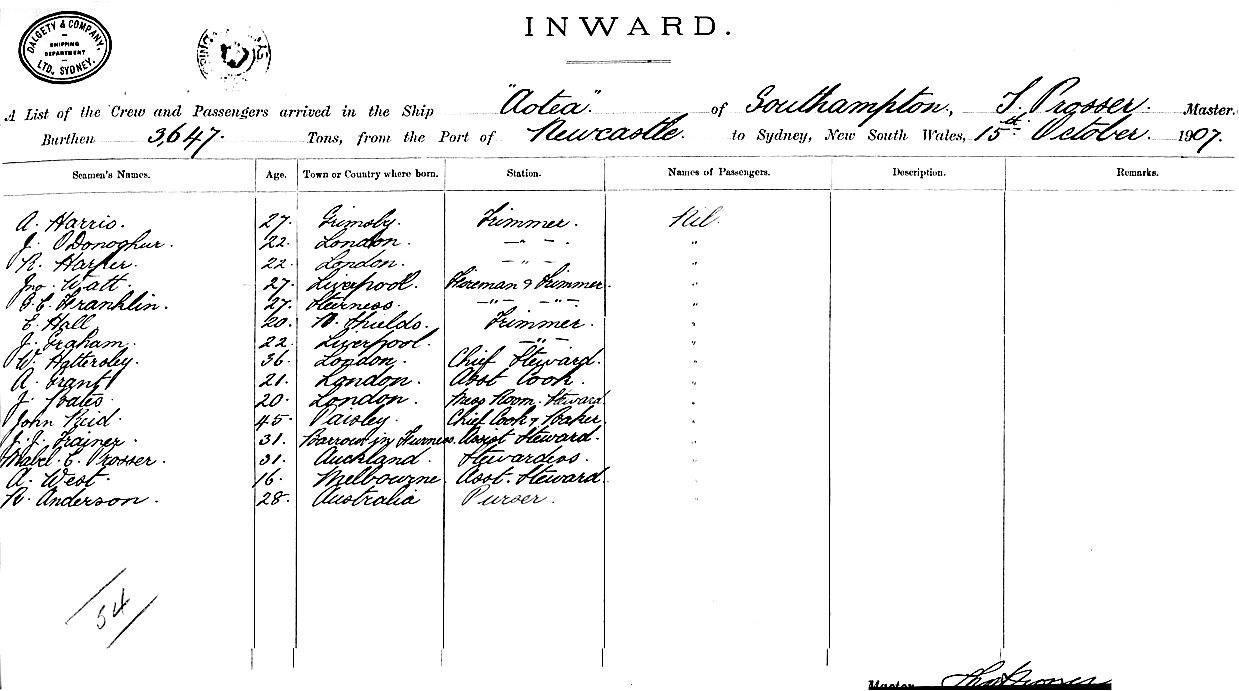 DALGETY & COMPANY,
SHIPPING
DEPARTMENT
LTD. SYDNEY.
INWARD.
A List of the Crew and Passengers arrived in the Ship "Aotea" of Southampton, T. Prosser. Master.
Burthen 3,647. Tons, from the Port of Newcastle. to Sydney, New South Wales, 15th October. 1907.
Seamen's Names. Age. Town or Country where born. Station. Names of Passengers. Description. Remarks.
A. Harris. 27. Grimsby. Trimmer. Nil.
J. O'Donoghue. 22. London. —"— "
R. Harper. 22. London. —"— "
Jno. Watt. 27. Liverpool. Fireman & Trimmer. "
Franklin. 27. —"— —"— "
E. Hall 20. N. Shields. Trimmer. "
J. Graham. 22. Liverpool. —"— "
W. Hattersley. 36. London. Chief Steward. "
A. Grant 21. London. Asst Cook. "
J. Bates. 20. London. Mess Room Steward "
John Reid 45. Paisley. Chief Cook & Baker. "
J. J. Trainer. 31. Barrow in Furness. Assist Steward. "
Mabel E. Prosser. 31. Auckland. Stewardess. "
A. West. 16. Melbourne Asst. Steward. "
R. Anderson. 28. Australia Purser. "
54
Master